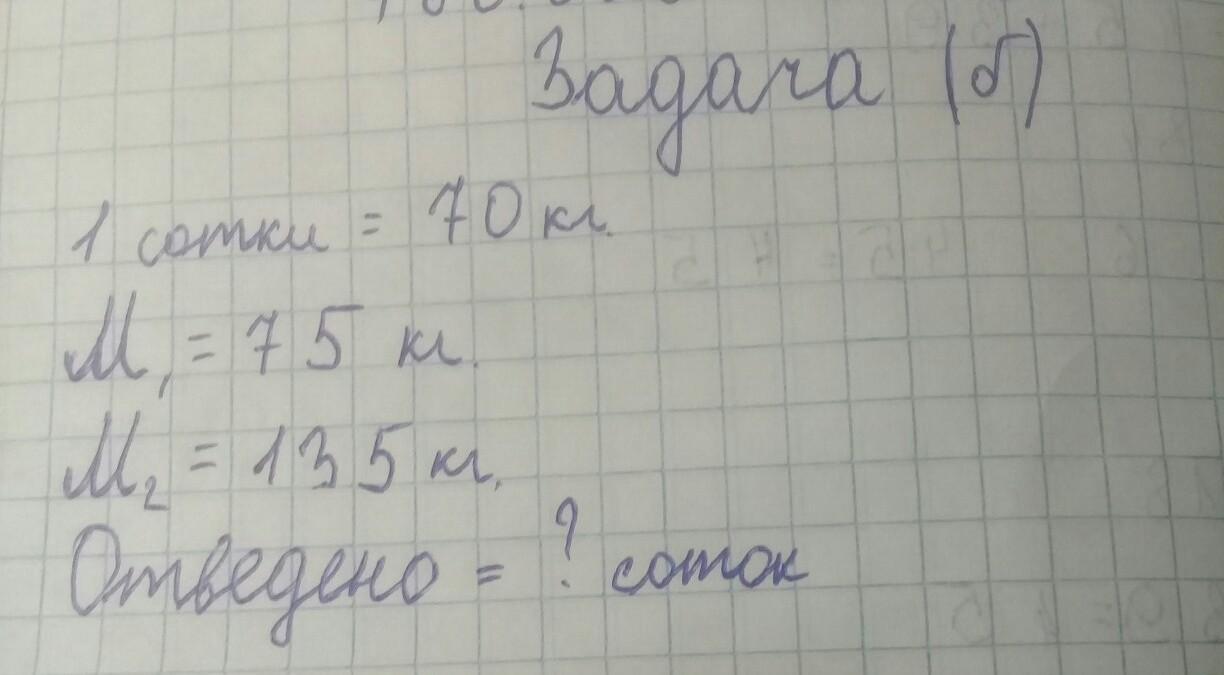 Задача (б)
1 сотки = 70 кг.
М₁ = 75 кг.
М₂ = 135 кг.
Отведено = ? соток